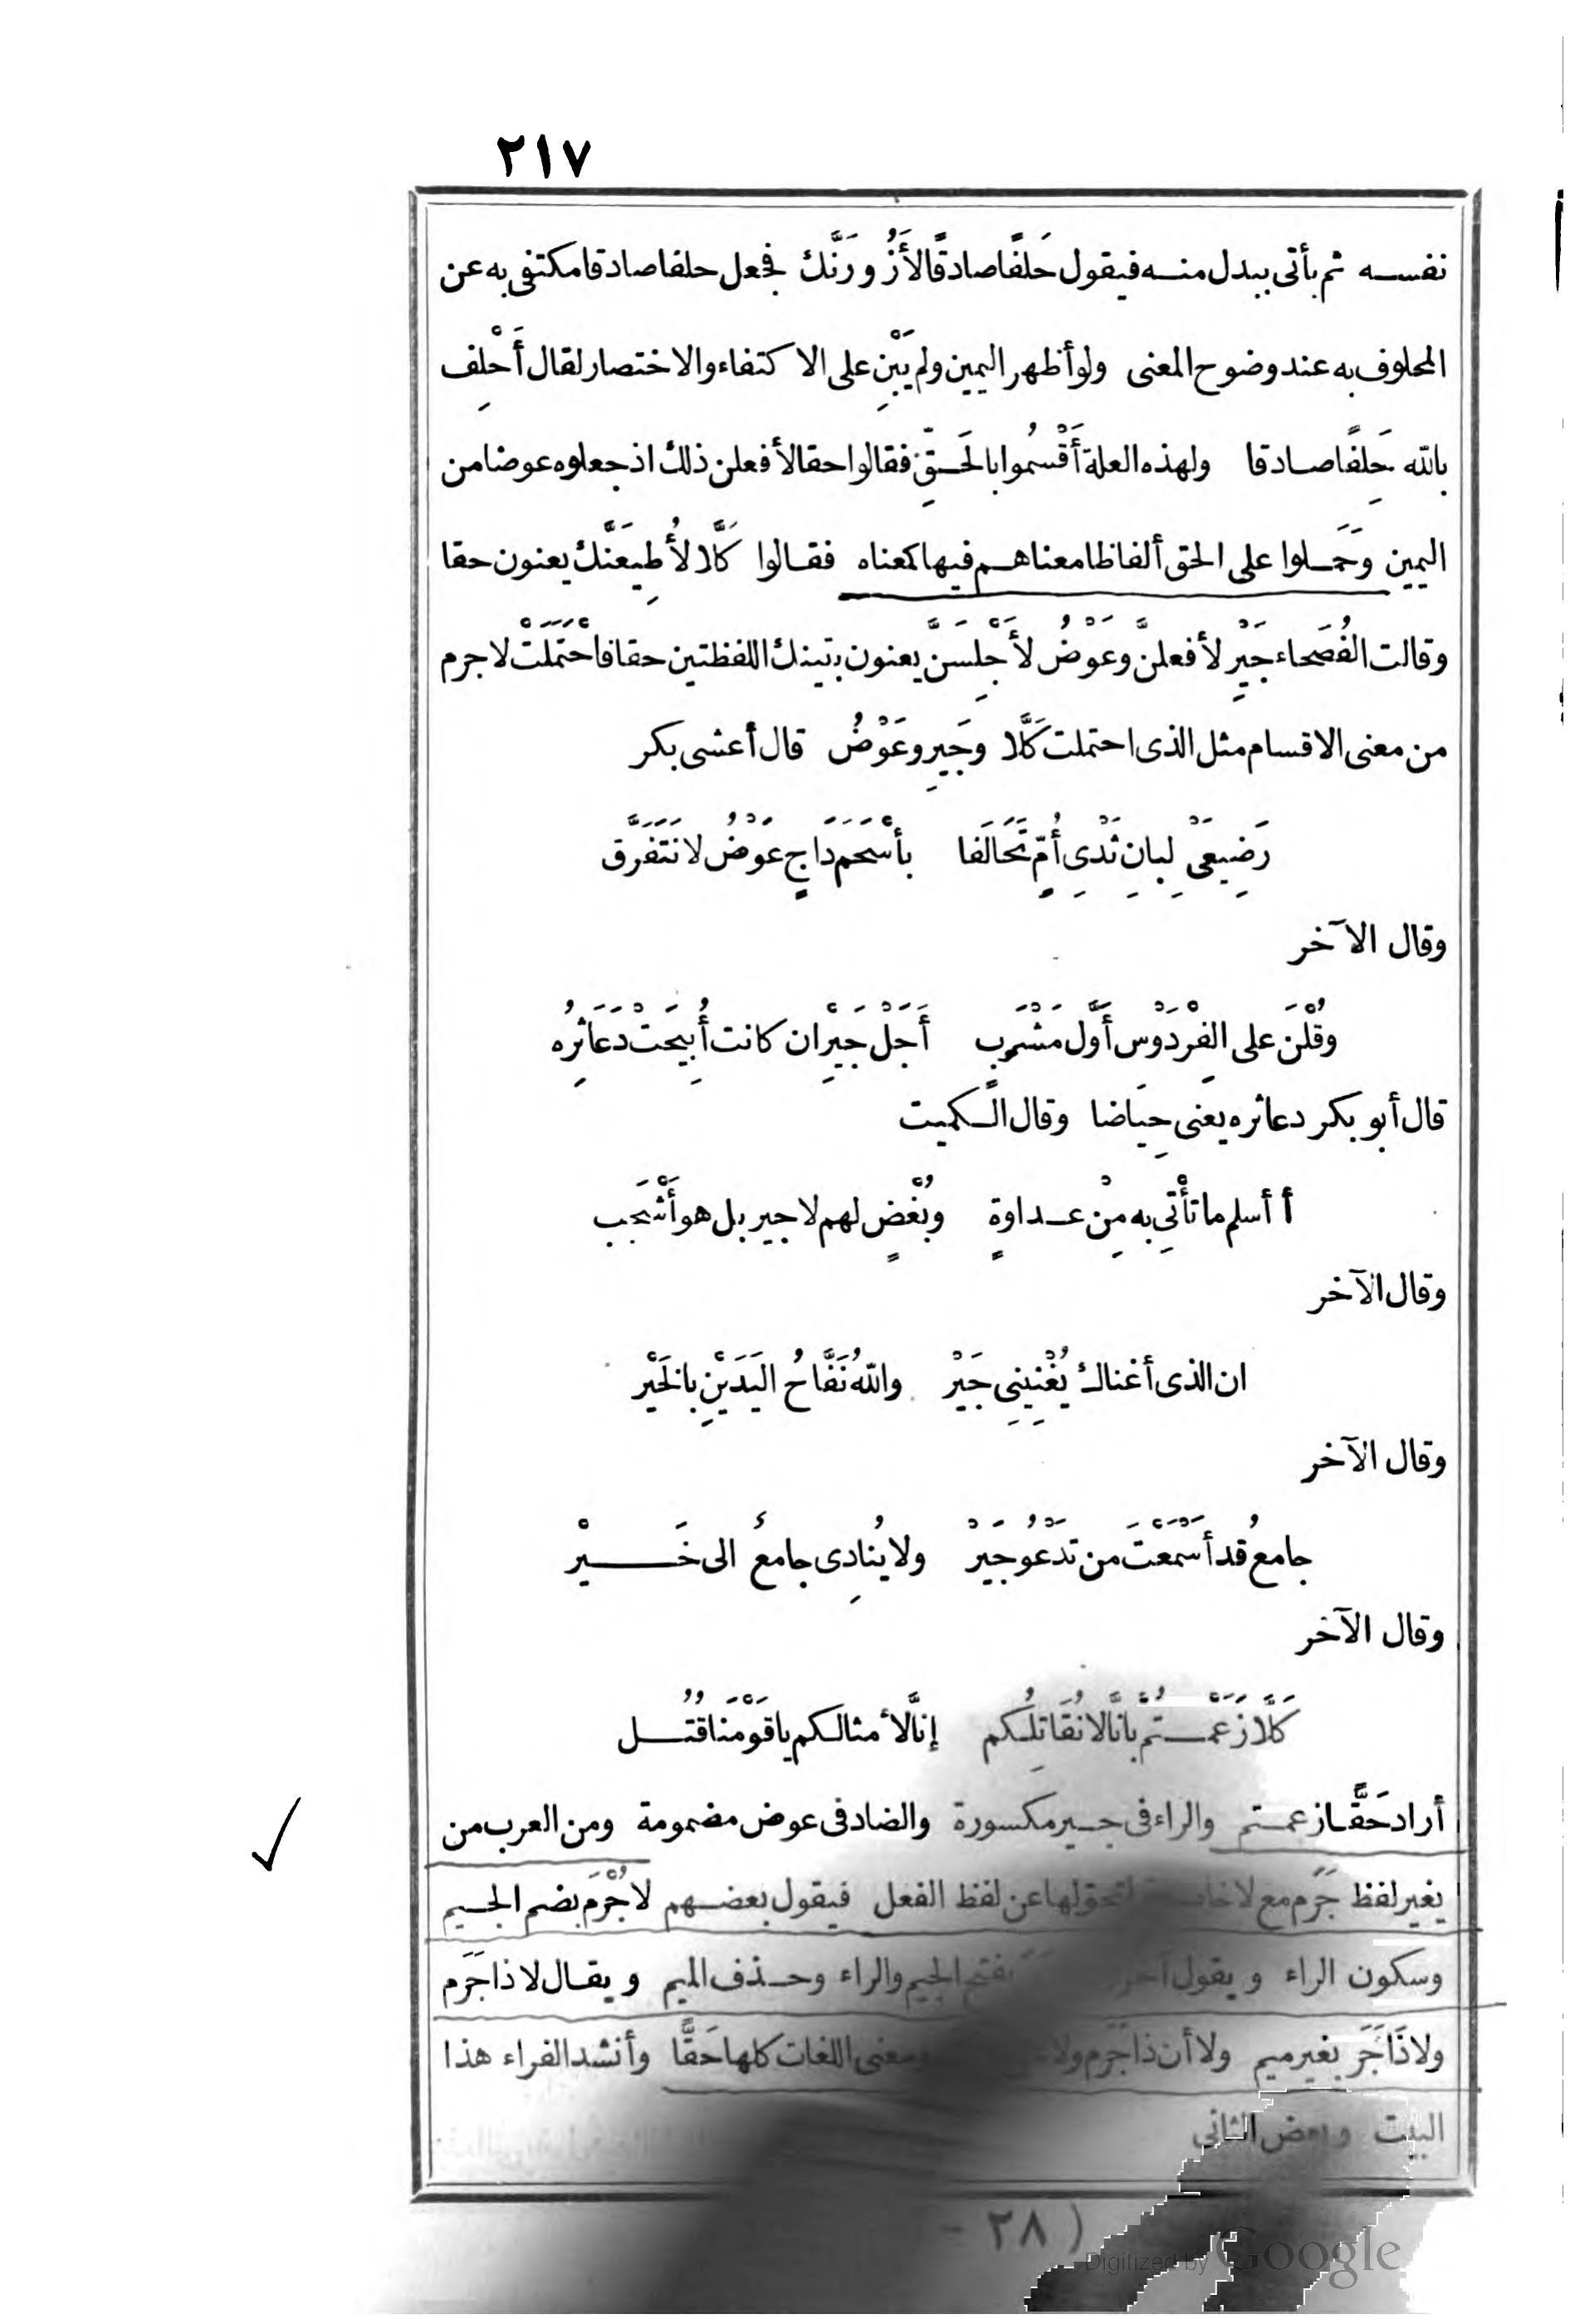 ٢١٧
نفسه ثم يأتى ببدل منه فيقول حَلفًا صادقًا لأَزُورَنَّك فجعل حلفا صادقا مكتفى به عن
المحلوف به عند وضوح المعنى ولو أظهر اليمين ولم يَبْنِ على الاكتفاء والاختصار لقال أَحْلِف
بالله حَلِفًا صادقا ولهذه العلة أَقْسُموا بالحَقّ فقالوا حقا لأفعلن ذلك اذ جعلوه عوضا من
اليمين وحَمَلوا على الحق ألفاظا معناهم فيها كمعناه فقالوا كَلَّا لأُطِيعَنَّك يعنون حقا
وقالت الفُصَحاء جَيْرِ لأفعلنَّ وعَوْضُ لأَجْلِسَنَّ يعنون بتينك اللفظتين حقا فاحْتَمَلَتْ لا جرم
من معنى الاقسام مثل الذى احتملت كَلَّا وجَيرِ وعَوْضُ قال أعشى بكر
رَضِيعَىْ لِبانِ ثَدْىِ أُمٍّ تَحَالَفَا بأَسْحَمَ دَاجٍ عَوْضُ لا نَتَفَرَّق
وقال الآخر
وقُلْنَ على الفِرْدَوْس أَوَّل مَشْرَبٍ أَجَلْ جَيْرِ ان كانت أُبِيحَتْ دَعَاثِرُه
قال أبو بكر دعاثره يعنى حِيَاضا وقال الكميت
أأسلم ما تأْتِى به مِنْ عداوةٍ وبُغْضٍ لهم لا جير بل هو أَشْجَب
وقال الآخر
ان الذى أغناك يُغْنِينِى جَيْرْ واللهُ نَفَّاحُ اليَدَيْنِ بالخَيْر
وقال الآخر
جامعُ قد أَسْمَعْتَ من تَدْعُو جَيْرْ ولا يُنادِى جامعُ الى خَيْرْ
وقال الآخر
كَلَّا زَعَمْتُمْ بأنَّا لا نُقَاتِلُكم إنَّا لأمثالكم يا قَوْمَنا قُتُل
أراد حَقَّا زعمتم والراء فى جير مكسورة والضاد فى عوض مضمومة ومن العرب من
يغير لفظ جَرَم مع لا خاصة لتحولها عن لفظ الفعل فيقول بعضهم لا جُرْمَ بضم الجيم
وسكون الراء ويقول آخر بفتح الجيم والراء وحذف الميم ويقال لا ذا جَرَم
ولا ذَا جَرَ بغير ميم ولا أن ذا جَرَم ولا ومعنى اللغات كلها حَقًّا وأنشد الفراء هذا
البيت وبعض الثانى
(٢٨ -
Digitized by Google